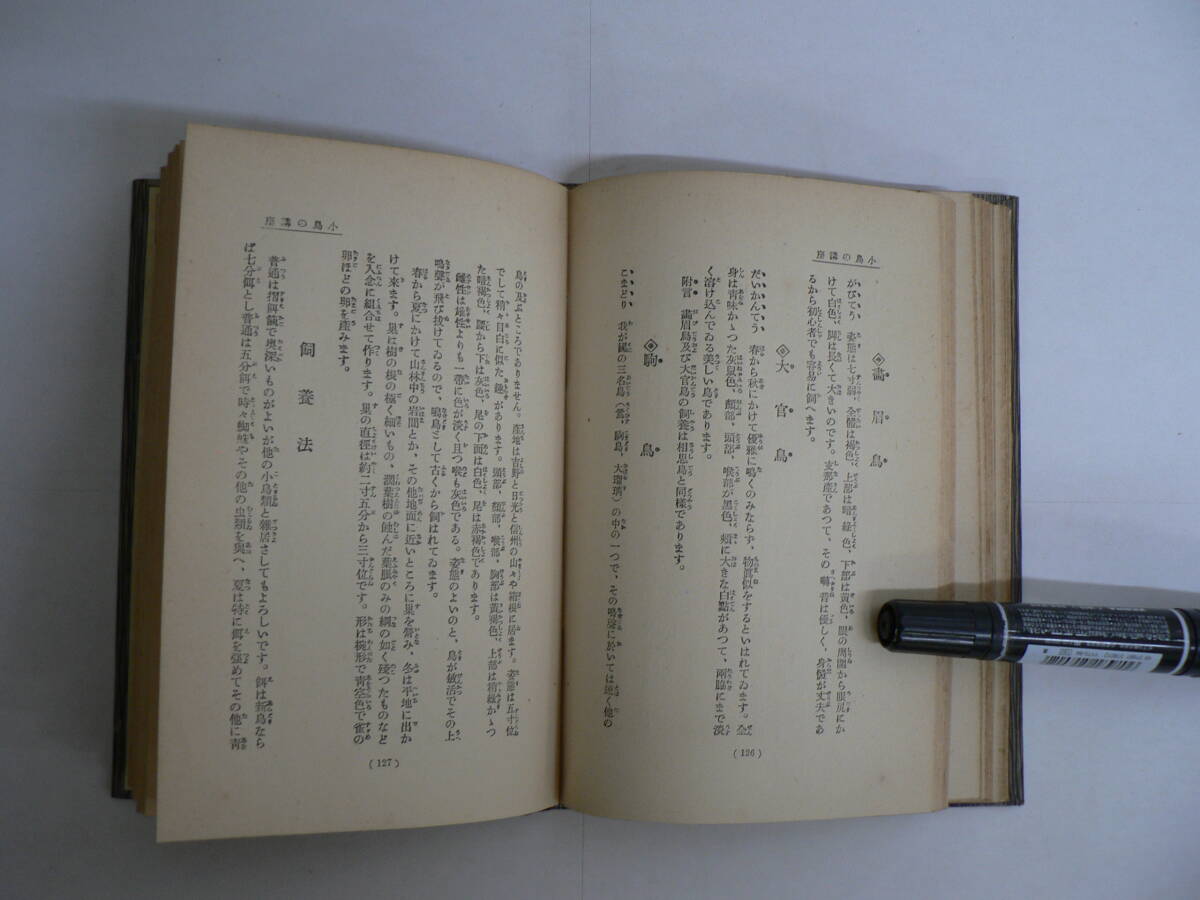 小鳥の講座
◇畵眉鳥
がびてう 姿態は七寸弱、全體は褐色、上部は暗綠色、下部は黄色、眼の周圍から眼尻にか
けて白色、脚は長くて大きいのです。支那産であつて、その囀音は優しく、身體が丈夫であ
るから初心者でも容易に飼へます。
◇大官鳥
だいかんてう 春から秋にかけて優雅に鳴くのみならず、物眞似をするといはれてゐます。全
身は靑味かゝつた灰鼠色、顏部、頭部、喉部が黑色、頰に大きな白點があつて、兩脇にまで淡
く溶け込んでゐる美しい鳥であります。
附言 畵眉鳥及び大官鳥の飼養は相思鳥と同樣であります。
◇駒鳥
こまどり 我が國の三名鳥(鶯、駒鳥、大瑠璃)の中の一つで、その鳴聲に於いては遠く他の
(126)
小鳥の講座
鳥の及ぶところでありません。産地は吉野と日光と信州の山々や箱根に居ます。姿態は五寸位
でして稍々目白に似た趣があります。頭部、顏部、喉部、胸部は黄褐色、上部は稍綠かゝつ
た暗褐色、腰から下は灰色、尾の下面は白色、足は赤褐色であります。
雌性は雄性よりも一帶に色が淡く且つ喉も灰色である。姿態のよいのと、鳥が敏活でその上
鳴聲が飛び拔けてゐるので、鳴鳥さして古くから飼はれてゐます。
春から夏にかけて山林中の岩間とか、その他地面に近いところに巢を營み、冬は平地に出か
けて來ます。巢は樹の根の極く細いもの、濶葉樹の蝕んだ葉脈のみの網の如く殘つたものなど
を入念に組合せて作ります。巢の直徑は約二寸五分から三寸位です。形は椀形で靑空色で雀の
卵ほどの卵を産みます。
飼養法
普通は摺餌籠で奥深いものがよいが他の小鳥類と雜居さしてもよろしいです。餌は新鳥なら
ば七分餌とし普通は五分餌で時々蜘蛛やその他の虫類を與へ、夏は特に餌を强めてその他に靑
(127)